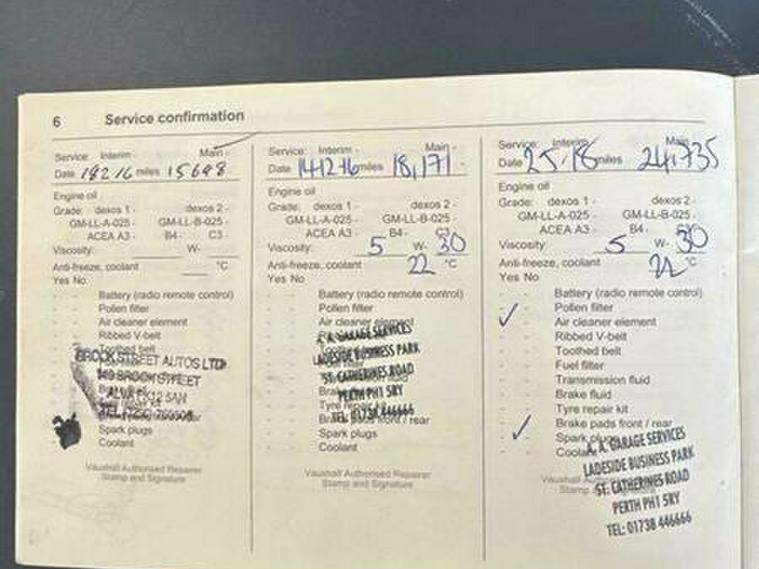 6 Service confirmation
Service: Interim - Main -
Date 18 2 16 miles 15698
Engine oil
Grade: dexos 1 - dexos 2 -
GM-LL-A-025 - GM-LL-B-025 -
ACEA A3 - B4 - C3 -
Viscosity: W-
Anti-freeze, coolant °C
Yes No
Battery (radio remote control)
Pollen filter
Air cleaner element
Ribbed V-belt
Toothed belt
BROOK STREET AUTOS LTD
149 BROOK STREET
ALVA FK12 5AN
Spark plugs
Coolant
Vauxhall Authorised Repairer
Stamp and Signature
Service: Interim - Main -
Date 14 12 16 miles 18,171 -
Engine oil
Grade: dexos 1 - dexos 2 -
GM-LL-A-025 - GM-LL-B-025 -
ACEA A3 - B4 - C3
Viscosity: 5 W- 30
Anti-freeze, coolant 22 °C
Yes No
Battery (radio remote control)
Pollen filter
Air cleaner element
A. A. GARAGE SERVICES
LADESIDE BUSINESS PARK
ST. CATHERINES ROAD
PERTH PH1 5RY
TEL: 01738 446666
Brake pads front / rear
Spark plugs
Coolant
Vauxhall Authorised Repairer
Stamp and Signature
Service: Interim - Main -
Date 25.18 miles 24,735
Engine oil
Grade: dexos 1 - dexos 2 -
GM-LL-A-025 - GM-LL-B-025 -
ACEA A3 - B4 - C3
Viscosity: 5 W- 30
Anti-freeze, coolant °C
Yes No
Battery (radio remote control)
Pollen filter
Air cleaner element
Ribbed V-belt
Toothed belt
Fuel filter
Transmission fluid
Brake fluid
Tyre repair kit
Brake pads front / rear
Spark plugs
Coolant
A. A. GARAGE SERVICES
LADESIDE BUSINESS PARK
ST. CATHERINES ROAD
PERTH PH1 5RY
TEL: 01738 446666